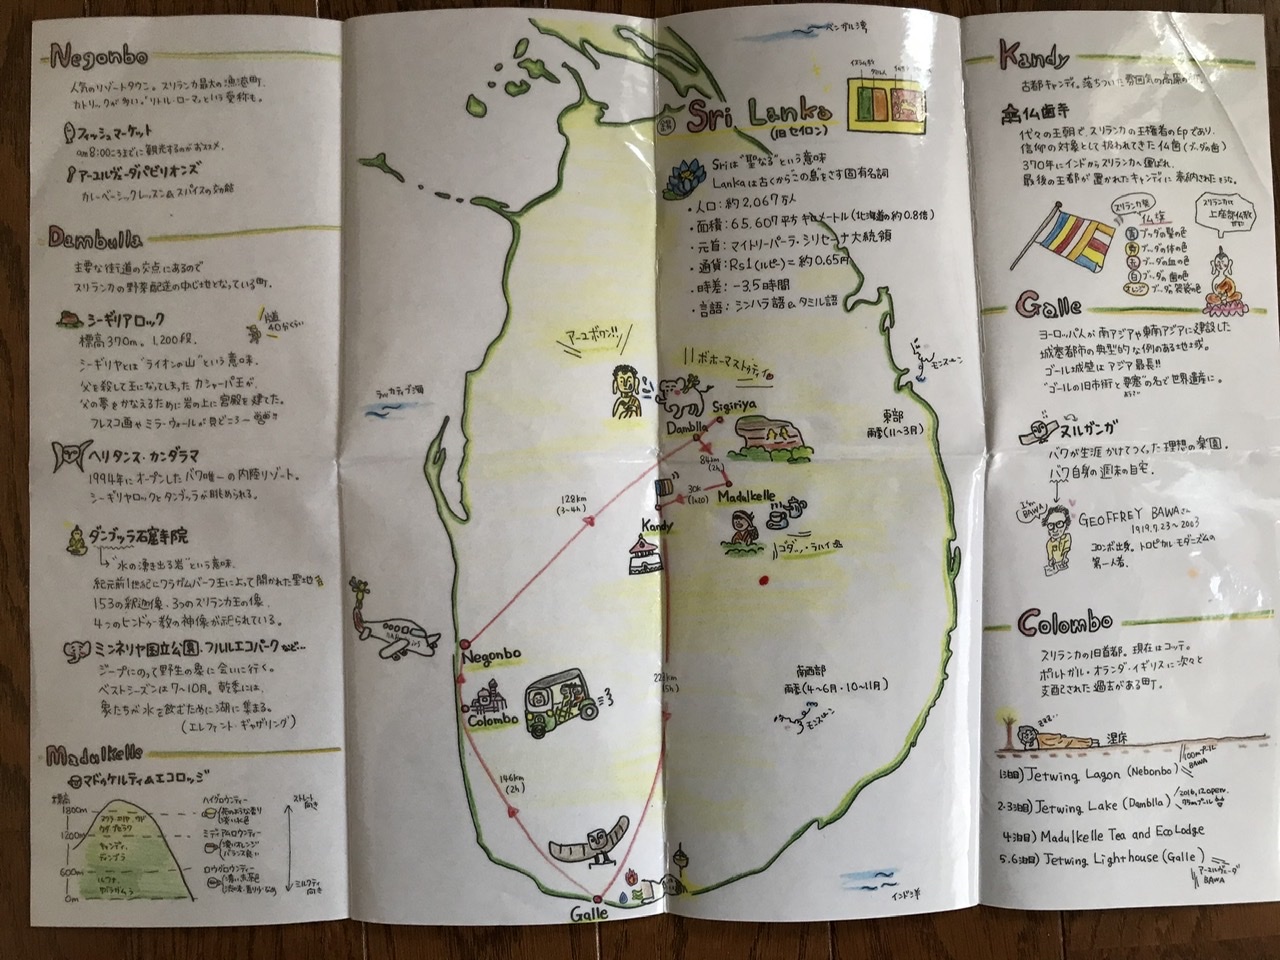 Negonbo
人気のリゾートタウン。スリランカ最大の漁港町.
カトリックが多い。"リトル・ローマ"という愛称も。
フィッシュマーケット
am8:00ごろまでに観光するのがおススメ.
アーユルヴェーダパビリオンズ
カレーベーシックレッスン&スパイスの効能
Dambulla
主要な街道の交点にあるので
スリランカの野菜配送の中心地となっている町.
シーギリアロック
片道
40分くらい
標高370m。1,200段.
シーギリヤとは"ライオンの山"という意味.
父を殺して王になってしまったカシャーパ王が、
父の夢をかなえるために岩の上に宮殿を建てた。
フレスコ画やミラーウォールが見どころ
ヘリタンス・カンダラマ
1994年にオープンしたバワ唯一の内陸リゾート。
シーギリヤロックとダンブッラが眺められる。
ダンブッラ石窟寺院
"水の湧き出る岩"という意味.
紀元前1世紀にワラガムバーフ王によって開かれた聖地
153の釈迦像・3つのスリランカ王の像、
4つのヒンドゥー教の神像が祀られている。
ミンネリヤ国立公園、フルルエコパークなど…
ジープにのって野生の象に会いに行く。
ベストシーズンは7〜10月。乾季には、
象たちが水を飲むために湖に集まる。
(エレファント・ギャザリング)
Madulkelle
マドゥケルティ&エコロッジ
標高
1800m
1200m
600m
0m
キャンディ,
ハイグロウンティー
ミディアムグロウンティー
ロウグロウンティー
ストレート
向き
ミルクティ
向き
ベンガル湾
Sri Lanka
(旧セイロン)
Sriは"聖なる"という意味
Lankaは古くからこの島をさす固有名詞
・人口:約2,067万人
・面積:65,607平方キロメートル(北海道の約0.8倍)
・元首:マイトリーパーラ・シリセーナ大統領
・通貨:Rs1(ルピー)=約0.65円
・時差:-3.5時間
・言語:シンハラ語&タミル語
アーユボワン!!
ボホーマストゥティ
ラッカディブ海
モンスーン
東部
雨季(11〜3月)
Sigiriya
Damblla
84km
(2h)
128km
(3〜4h)
30k
(1h20)
Madulkelle
Kandy
Negonbo
Colombo
南西部
雨季(4〜6月・10〜11月)
モンスーン
146km
(2h)
Galle
インド洋
Kandy
古都キャンディ。落ちついた雰囲気の高原の
仏歯寺
代々の王朝で、スリランカの王権者の印であり、
信仰の対象として扱われてきた仏歯(ブッダの歯)
370年にインドからスリランカへ運ばれ、
最後の王都が置かれたキャンディに奉納されたそうな。
スリランカ発
仏旗
スリランカは
上座部仏教
だよ
青 ブッダの髪の色
黄 ブッダの体の色
赤 ブッダの血の色
白 ブッダの歯の色
オレンジ ブッダの袈裟の色
Galle
ヨーロッパ人が南アジアや東南アジアに建設した
城塞都市の典型的な例のある地域。
ゴール城壁はアジア最長!!
"ゴールの旧市街と要塞"の名で世界遺産に。
ヌルガンガ
バワが生涯かけてつくった理想の楽園.
バワ自身の週末の自宅.
I'm
BAWA
GEOFFREY BAWAさん
1919.7.23〜2003
コロンボ出身。トロピカル・モダニズムの
第一人者.
Colombo
スリランカの旧首都。現在はコッテ。
ポルトガル・オランダ・イギリスに次々と
支配された過去がある町。
zzz..
寝床
1泊目) Jetwing Lagon (Nebonbo)
100mプール
BAWA
2・3泊目) Jetwing Lake (Damblla)
2016.12.open.
4泊目) Madulkelle Tea and EcoLodge
5.6泊目) Jetwing Lighthouse (Galle)
アーユルヴェーダ
BAWA